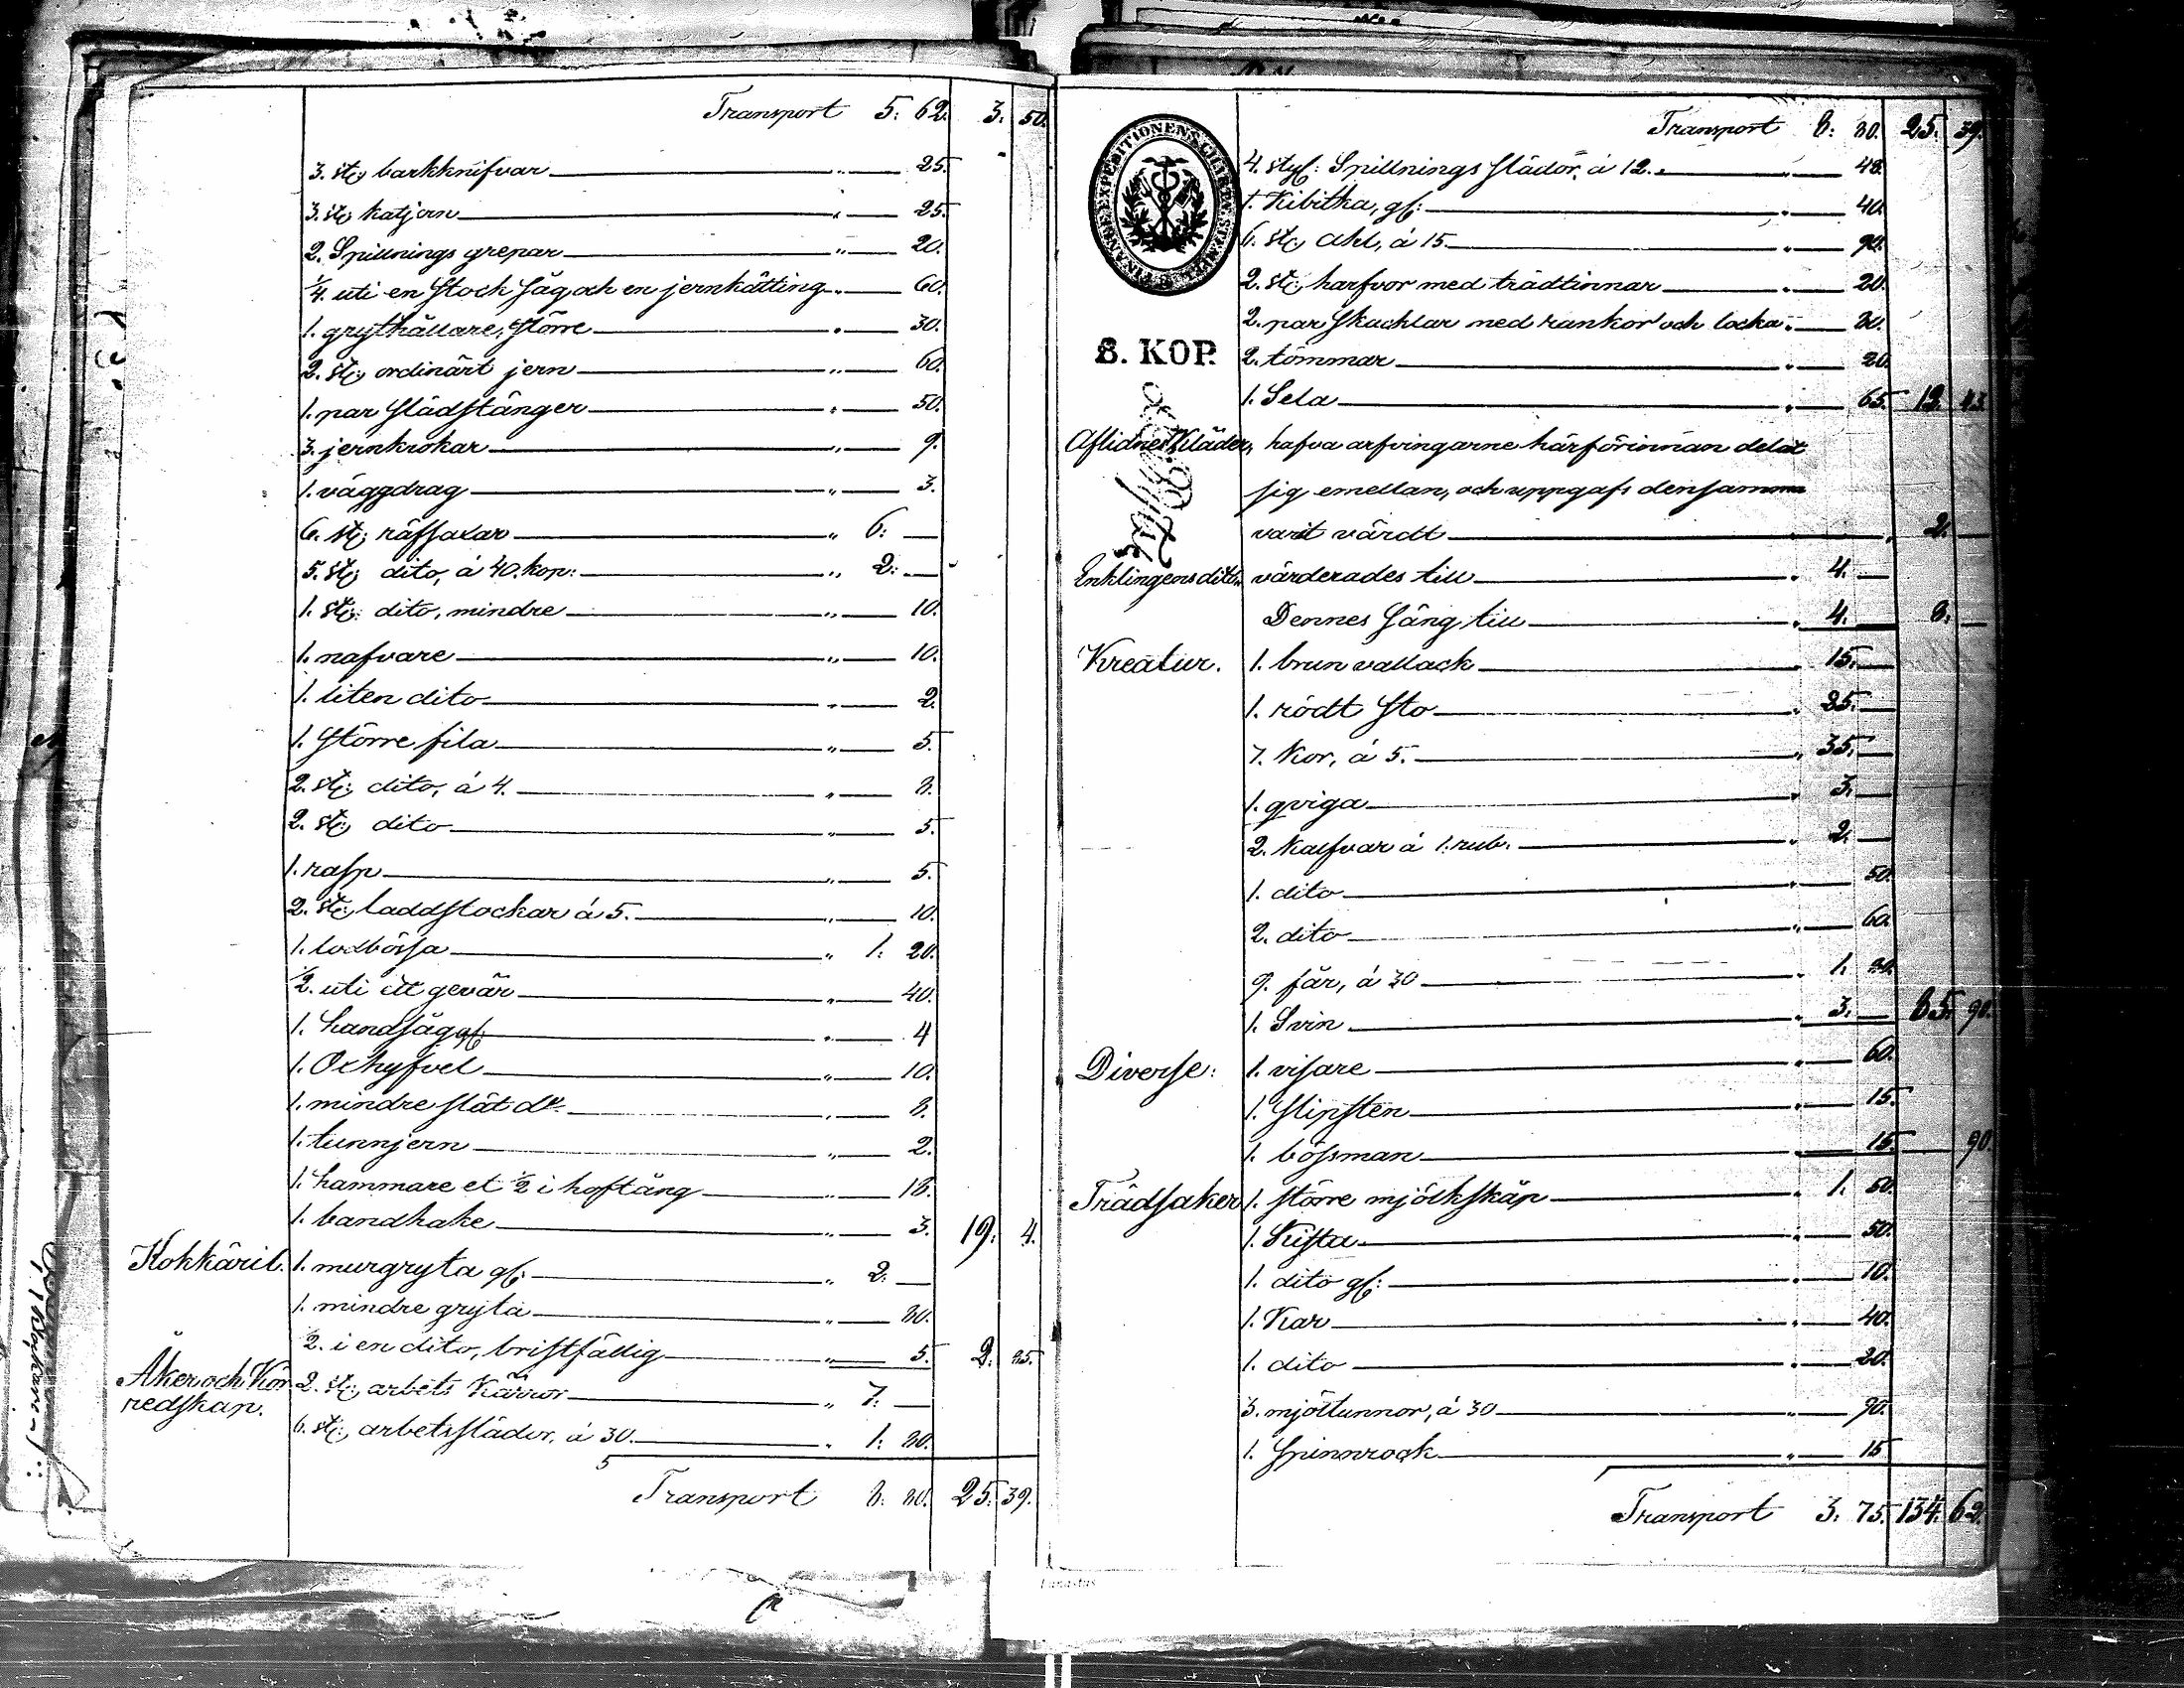 Transport 5: 62. 3. 50.
3. st: barkknifvar „ — 25.
3. st: katjern „ — 25.
2. Spillnings grepar „ — 20.
1/4. uti en stock såg och en jernkätting „ — 60.
1. grythållare, större „ — 30.
2. st: ordinärt jern „ — 60.
1. par slädstänger „ — 50.
3. jernkrokar „ — 9.
1. väggdrag „ — 3.
6. st: räfsaxar „ 6: —
5. st: dito, á 40. kop: „ 2: —
1. st: dito, mindre „ — 10.
1. nafvare „ — 10.
1. liten dito „ — 2.
1. större fila „ — 5.
2. st: dito, á 4. „ — 8.
2. st: dito „ — 5.
1. rasp „ — 5.
2. st: laddstockar á 5. „ — 10.
1. lodbössa „ 1: 20.
1/2. uti ett gevär „ — 40.
1. handsåg gl: „ — 4
1. Oxhyfvel „ — 10.
1. mindre slät do „ — 8.
1. tunnjern „ — 2.
1. hammare et 1/2 i hoftång „ — 18.
1. bandhake „ — 3. 19: 4.
Kokkäril. 1. murgryta gl: „ 2: —
1. mindre gryta „ — 80.
1/2. i en dito, bristfällig „ — 5. 2: 85.
Åker och Kör redskap. 2. st: arbets kärror „ 7: —
6. st: arbetsslädor, á 30. „ 1: 80.
Transport 8: 80. 25: 39.
FINANCE EXPEDITIONENS CHARTÆ STEMPEL
8. KOP.
Transport 8: 80. 25. 39.
4. styck: Spillnings slädor, á 12. „ — 48.
1. Kibitka, gl: „ — 40.
6. st: åkl, á 15 „ — 90.
2. st: harfvor med trädtinnar „ — 20.
2. par skacklar med rankor och locka „ — 80.
2. tömmar „ — 20.
1. Sela „ — 65. 12. 43.
Aflidnes Kläder, hafva arfvingarne härförinnan delat
sig emellan, och uppgafs densamma
varit värdt „ 2. —
Enklingens dito, värderades till „ 4. —
Dennes säng till „ 4. — 8. —
Kreatur. 1. brun vallack „ 15. —
1. rödt sto „ 25. —
7. Kor, á 5. „ 35. —
1. qviga „ 3. —
2. Kalfvar á 1. rub. „ 2. —
1. dito „ — 50.
2. dito „ — 60.
9. får, á 20 „ 1. 80.
1. Svin „ 3. — 85. 90.
Diverse: 1. visare „ — 60.
1. slipsten „ — 15.
1. bössman „ — 15. — 90.
Trädsaker 1. större mjölkskåp „ 1. 50.
1. Kista „ — 50.
1. dito gl: „ — 10.
1. Kar „ — 40.
1. dito „ — 20.
3. mjöltunnor, á 30 „ — 90.
1. Spinnrock „ — 15
Transport 3. 75. 134. 62.